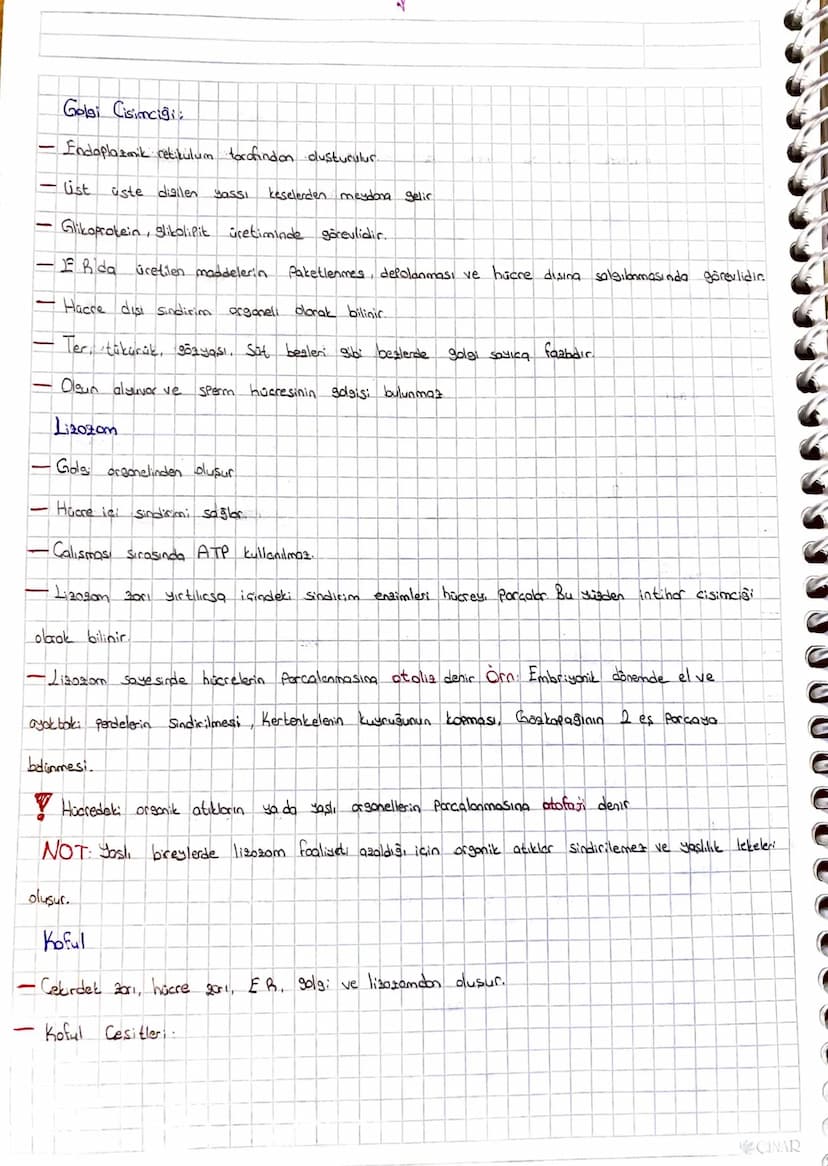 Golgi Cisimciği:
– Endoplazmik retikulum tarafından oluşturulur.
– Üst üste dizilen yassı keselerden meydana gelir
– Glikoprotein, glikolipit üretiminde görevlidir.
– ER'da üretilen maddelerin Paketlenmes, depolanması ve hücre dışına salgılanmasında görevlidir.
– Hücre dışı sindirim organeli olarak bilinir.
– Ter, tükürük, gözyaşı, Süt bezleri gibi bezlerde golgi sayıca fazladır.
– Olgun alyuvar ve sperm hücresinin golgisi bulunmaz
Lizozom
– Golgi organelinden oluşur
– Hücre içi sindirimi sağlar.
– Çalışması sırasında ATP kullanılmaz.
– Lizozom zarı yırtılırsa içindeki sindirim enzimleri hücreyi Parçalar. Bu yüzden intihar cisimciği
olarak bilinir.
– Lizozom sayesinde hücrelerin Parçalanmasına otoliz denir Örn: Embriyonik dönemde el ve
ayaktaki perdelerin sindirilmesi, Kertenkelenin kuyruğunun kopması, Gözkapağının 2 eş Parçaya
bölünmesi.
! Hücredeki organik atıkların ya da yaşlı organellerin Parçalanmasına otofaji denir
NOT: Yaşlı bireylerde lizozom faaliyeti azaldığı için organik atıklar sindirilemez ve yaşlılık lekeleri
oluşur.
Koful
– Çekirdek zarı, hücre zarı, ER, golgi ve lizozomdan oluşur.
– Koful Çeşitleri:
ÇINAR